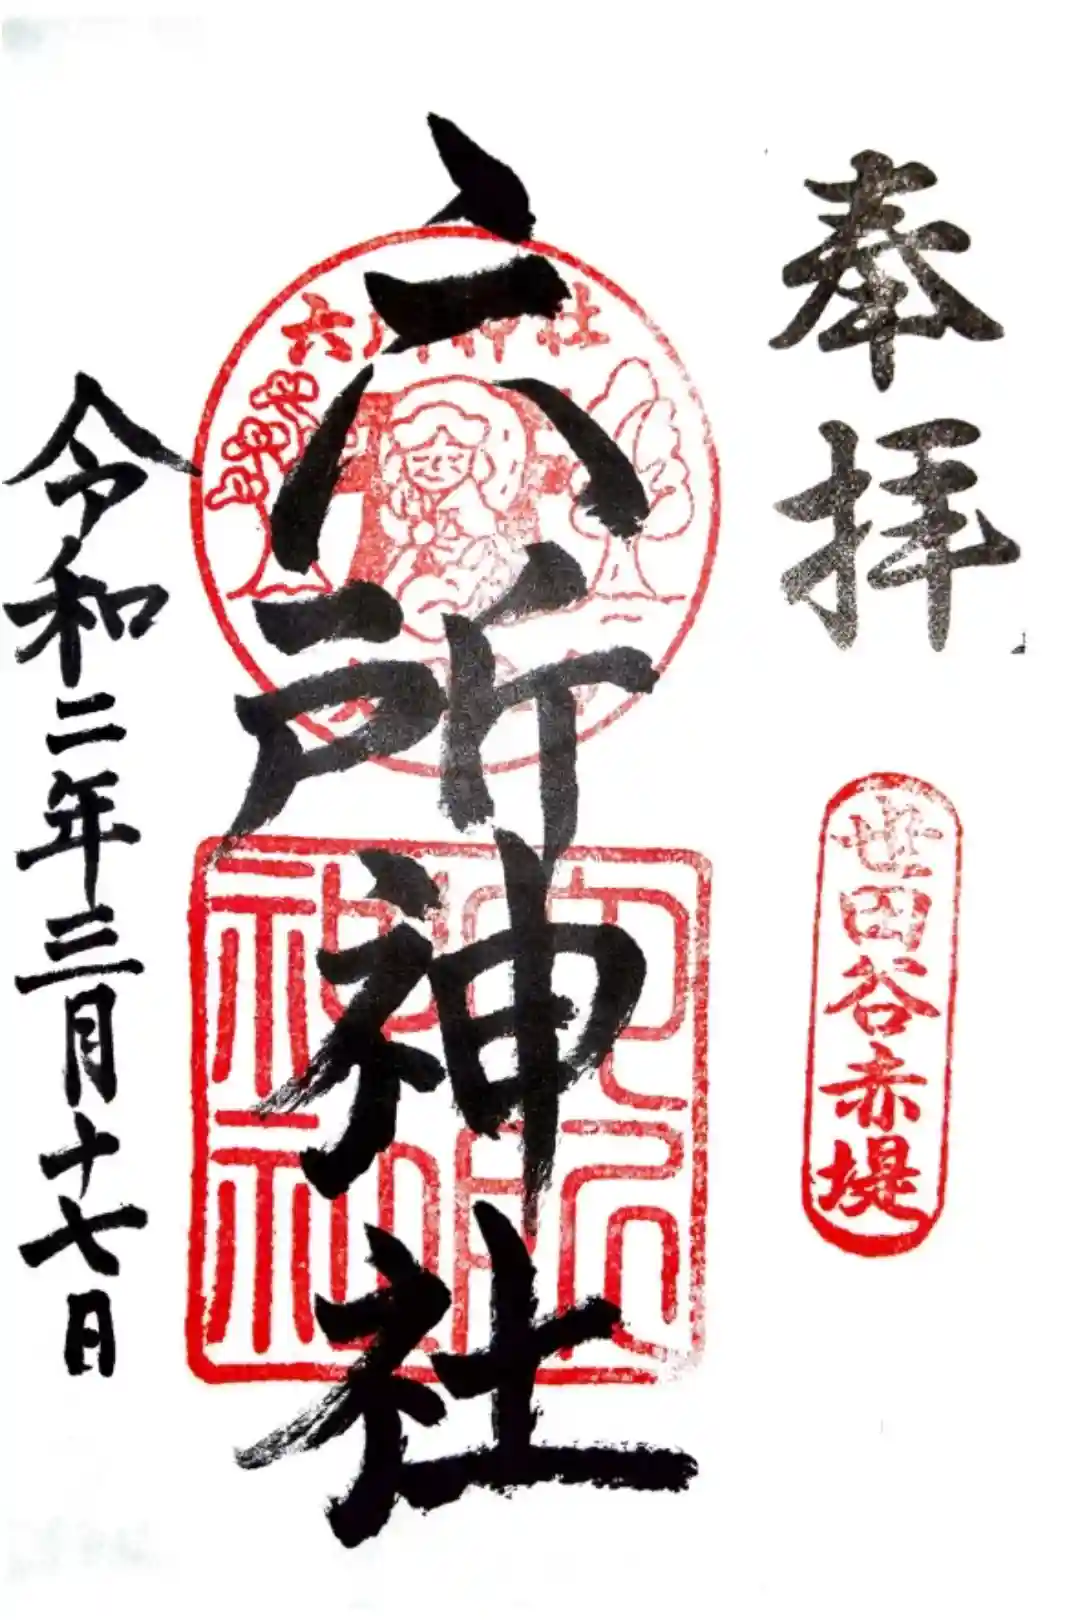 奉拝
世田谷赤堤
六所神社
六所神社
六所神社
令和二年三月十七日